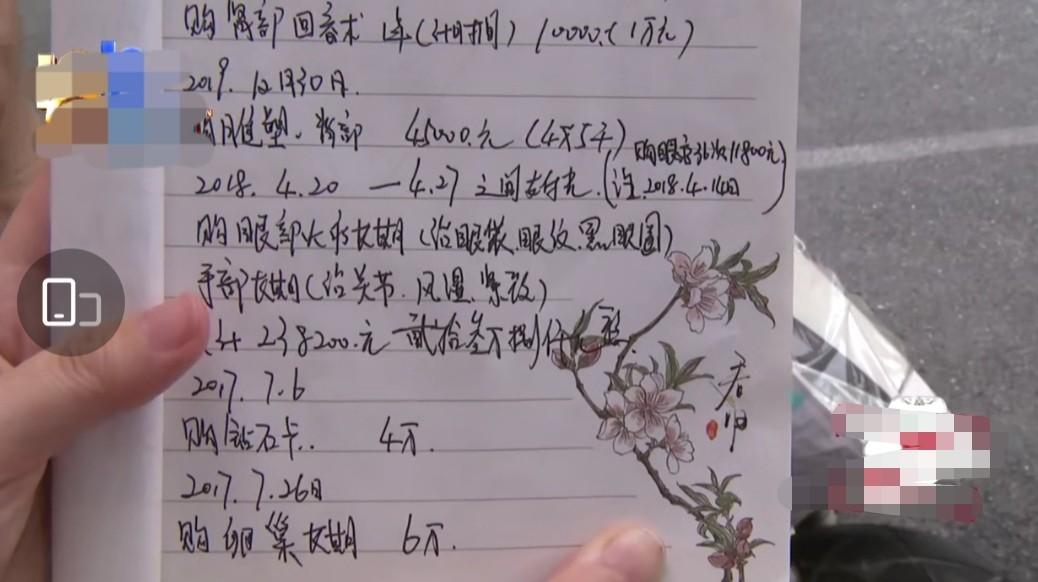 购肾部回春术 1年(计时间) 10000.(1万元)
2019.12月30日.
购月健塑. 背部 45000.元(4万5千)
购眼部36次11800元
2018.4.20 — 4.27 之间支付完.(注.2018.4.14日)
购眼部长期(治眼袋.眼纹.黑眼圈)
手部长期(治关节.风湿.紧致)
共计238200.元 贰拾叁万捌仟贰
2017.7.6
购钻石卡. 4万.
2017.7.26日
购卵巢长期 6万.
春归